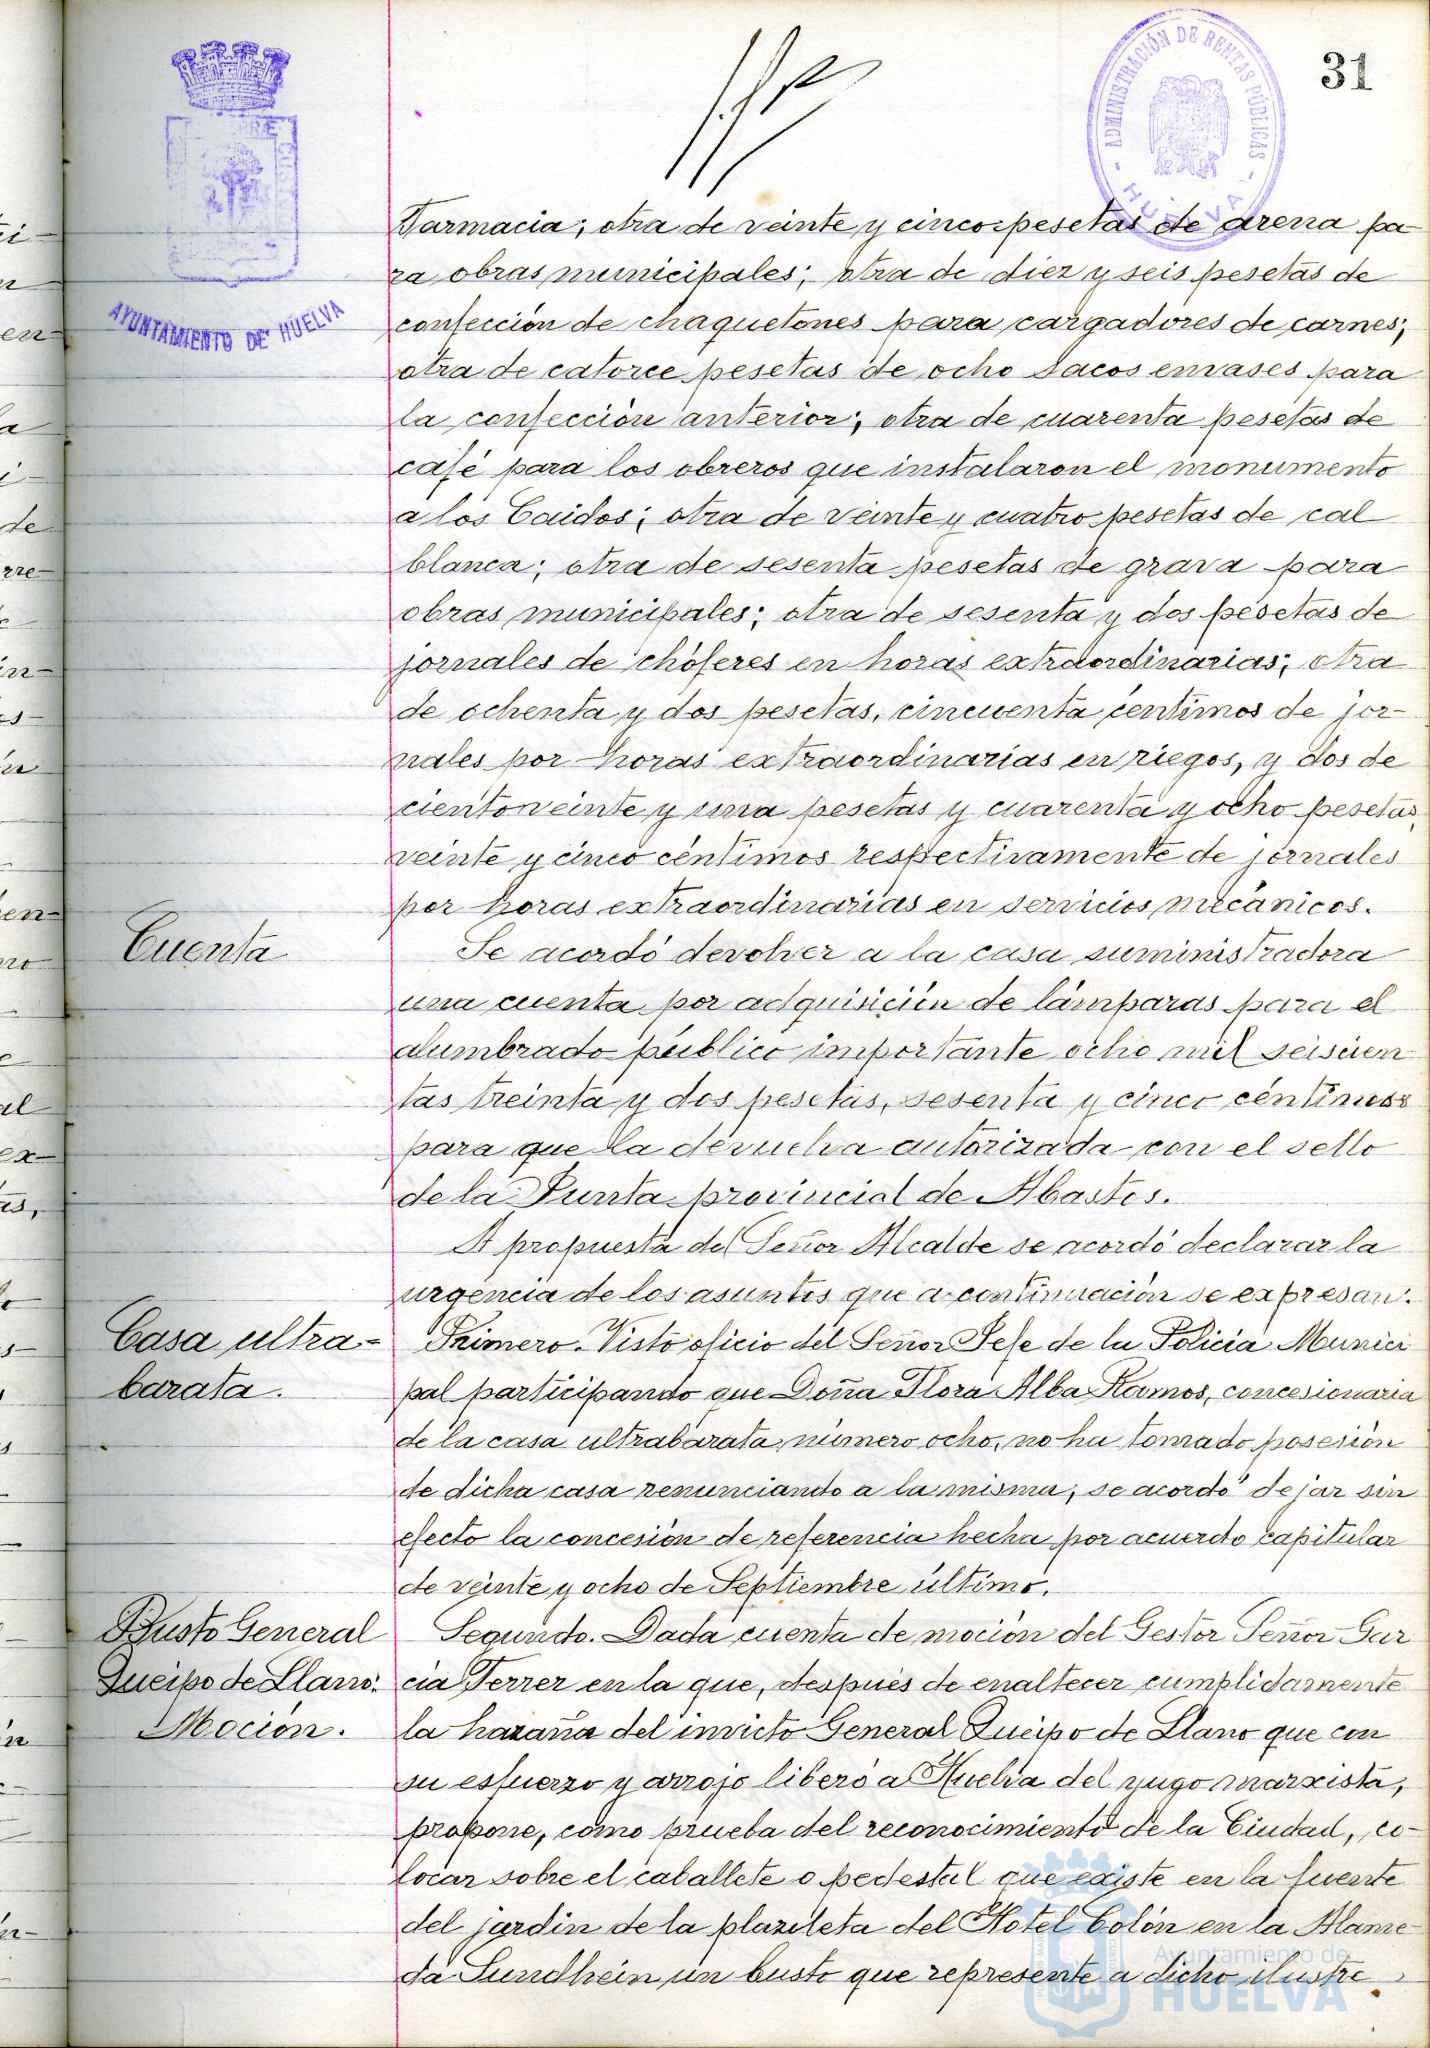 31
ADMINISTRACIÓN DE RENTAS PÚBLICAS
HUELVA
AYUNTAMIENTO DE HUELVA
Farmacia; otra de veinte y cinco pesetas de arena pa-
ra obras municipales; otra de diez y seis pesetas de
confección de chaquetones para cargadores de carnes;
otra de catorce pesetas de ocho sacos envases para
la confección anterior; otra de cuarenta pesetas de
café para los obreros que instalaron el monumento
a los Caidos; otra de veinte y cuatro pesetas de cal
blanca; otra de sesenta pesetas de grava para
obras municipales; otra de sesenta y dos pesetas de
jornales de chóferes en horas extraordinarias; otra
de ochenta y dos pesetas, cincuenta céntimos de jor-
nales por horas extraordinarias en riegos, y dos de
ciento veinte y una pesetas y cuarenta y ocho pesetas,
veinte y cinco céntimos respectivamente de jornales
por horas extraordinarias en servicios mecánicos.
Cuenta
Se acordó devolver a la casa suministradora
una cuenta por adquisición de lámparas para el
alumbrado público importante ocho mil seiscien
tas treinta y dos pesetas, sesenta y cinco céntimos
para que la devuelva autorizada con el sello
de la Junta provincial de Abastos.
A propuesta del Señor Alcalde se acordó declarar la
urgencia de los asuntos que a continuación se expresan:
Casa ultra=
barata.
Primero. Visto oficio del Señor Jefe de la Policia Munici
pal participando que Doña Flora Alba Ramos, concesionaria
de la casa ultrabarata número ocho, no ha tomado posesión
de dicha casa renunciando a la misma, se acordó dejar sin
efecto la concesión de referencia hecha por acuerdo capitular
de veinte y ocho de Septiembre último.
Busto General
Queipo de Llano.
Moción.
Segundo. Dada cuenta de moción del Gestor Señor Gar
cia Ferrer en la que, después de enaltecer cumplidamente
la hazaña del invicto General Queipo de Llano que con
su esfuerzo y arrojo liberó a Huelva del yugo marxista,
propone, como prueba del reconocimiento de la Ciudad, co-
locar sobre el caballete o pedestal que existe en la fuente
del jardin de la plazoleta del Hotel Colón en la Alame-
da Sundhein un busto que represente a dicho ilustre
Ayuntamiento de
HUELVA